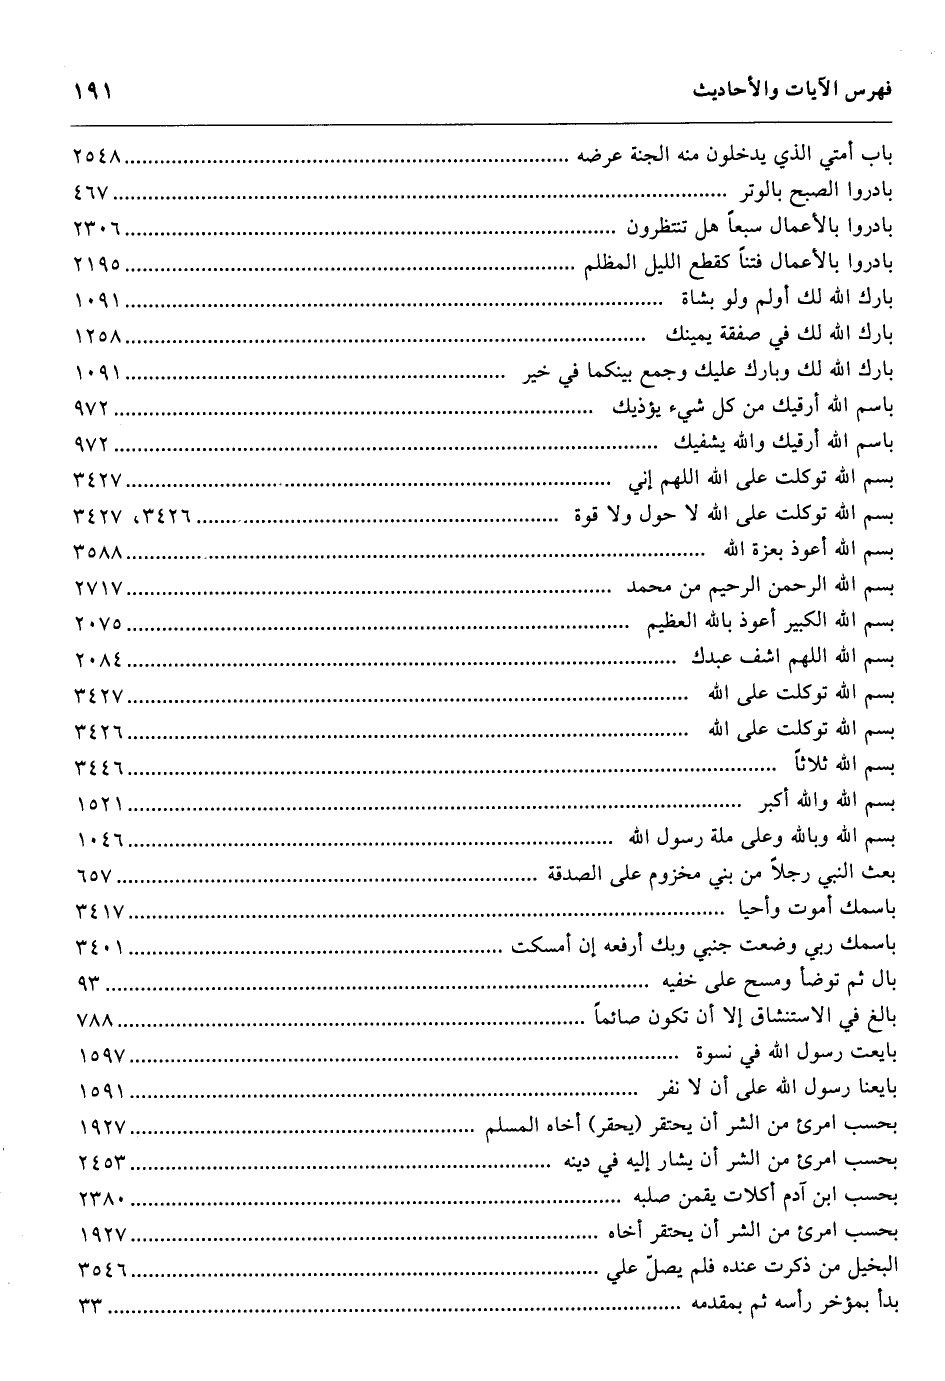 فهرس الآيات والأحاديث ١٩١
باب أمتي الذي يدخلون منه الجنة عرضه ٢٥٤٨
بادروا الصبح بالوتر ٤٦٧
بادروا بالأعمال سبعاً هل تنتظرون ٢٣٠٦
بادروا بالأعمال فتناً كقطع الليل المظلم ٢١٩٥
بارك الله لك أولم ولو بشاة ١٠٩١
بارك الله لك في صفقة يمينك ١٢٥٨
بارك الله لك وبارك عليك وجمع بينكما في خير ١٠٩١
باسم الله أرقيك من كل شيء يؤذيك ٩٧٢
باسم الله أرقيك والله يشفيك ٩٧٢
بسم الله توكلت على الله اللهم إني ٣٤٢٧
بسم الله توكلت على الله لا حول ولا قوة ٣٤٢٦، ٣٤٢٧
بسم الله أعوذ بعزة الله ٣٥٨٨
بسم الله الرحمن الرحيم من محمد ٢٧١٧
بسم الله الكبير أعوذ بالله العظيم ٢٠٧٥
بسم الله اللهم اشف عبدك ٢٠٨٤
بسم الله توكلت على الله ٣٤٢٧
بسم الله توكلت على الله ٣٤٢٦
بسم الله ثلاثاً ٣٤٤٦
بسم الله والله أكبر ١٥٢١
بسم الله وبالله وعلى ملة رسول الله ١٠٤٦
بعث النبي رجلاً من بني مخزوم على الصدقة ٦٥٧
باسمك أموت وأحيا ٣٤١٧
باسمك ربي وضعت جنبي وبك أرفعه إن أمسكت ٣٤٠١
بال ثم توضأ ومسح على خفيه ٩٣
بالغ في الاستنشاق إلا أن تكون صائماً ٧٨٨
بايعت رسول الله في نسوة ١٥٩٧
بايعنا رسول الله على أن لا نفر ١٥٩١
بحسب امرئ من الشر أن يحتقر (يحقر) أخاه المسلم ١٩٢٧
بحسب امرئ من الشر أن يشار إليه في دينه ٢٤٥٣
بحسب ابن آدم أكلات يقمن صلبه ٢٣٨٠
بحسب امرئ من الشر أن يحتقر أخاه ١٩٢٧
البخيل من ذكرت عنده فلم يصلّ علي ٣٥٤٦
بدأ بمؤخر رأسه ثم بمقدمه ٣٣